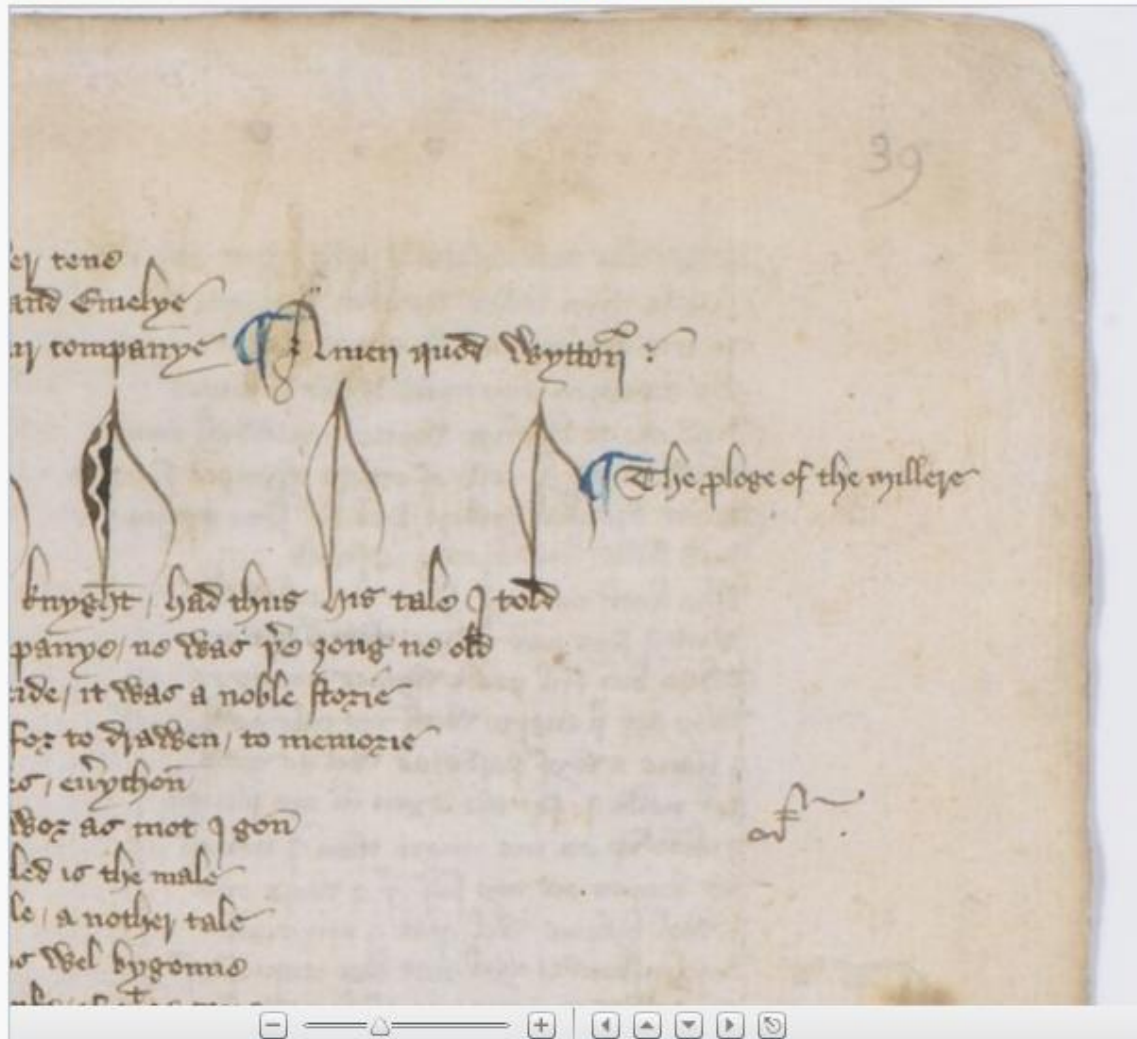 39
er tene
and Emelye
ur companye ¶ Amen quod Wytton :
¶ The ploge of the millere
knyght / had thus his tale I told
panye / ne was þe ȝong ne old
cide / it was a noble storie
for to drawen / to memorie
es / euychon
wor as mot I gon
led is the male
le / a nother tale
is wel bygonne